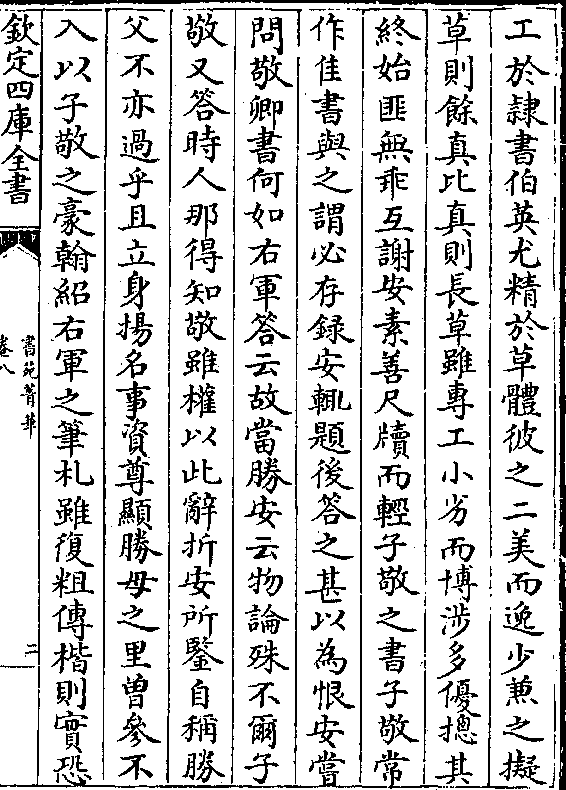 工於隷書伯英尤精於草體彼之二美而逸少兼之擬
草則餘真比真則長草雖專工小劣而博渉多優摠其
終始匪無乖互謝安素善尺牘而輕子敬之書子敬常
作佳書與之謂必存録安輒題後答之甚以為恨安嘗
問敬卿書何如右軍答云故當勝安云物論殊不爾子
敬又答時人那得知敬雖權以此辭折安所鑒自稱勝
父不亦過乎且立身揚名事資尊顯勝母之里曾參不
入以子敬之豪翰紹右軍之筆札雖復粗傳楷則實恐
欽定四庫全書
書苑菁華
卷八
二